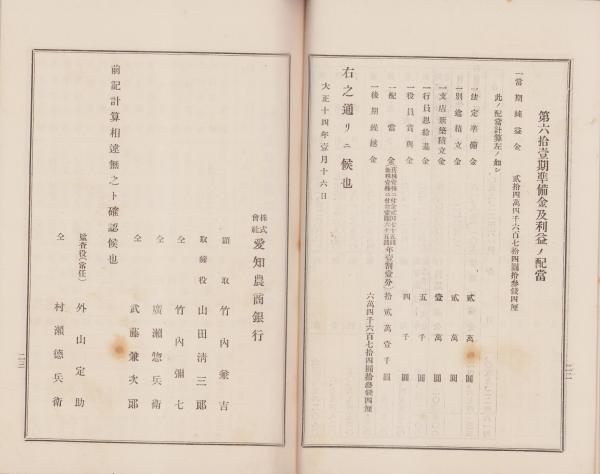 第六拾壹期準備金及利益ノ配當
一當期純益金 貳拾四萬四千六百七拾四圓拾參錢四厘
此ノ配當計算左ノ如シ
一法定準備金 貳萬圓
一別途積立金 貳萬圓
一支店新築積立金 壹萬圓
一行員恩給基金 五千圓
一役員賞與金 四千圓
一配當金 年壹割壹分 拾貳萬壹千圓
一後期繰越金 六萬四千六百七拾四圓拾參錢四厘
右之通リニ候也
大正十四年壹月十六日
二二
株式會社 愛知農商銀行
頭取 竹內兼吉
取締役 山田淸三郞
仝 竹內彌七
仝 廣瀨惣兵衞
仝 武藤兼次郞
前記計算相違無之ト確認候也
監査役(常任) 外山定助
仝 村瀨德兵衞
二三